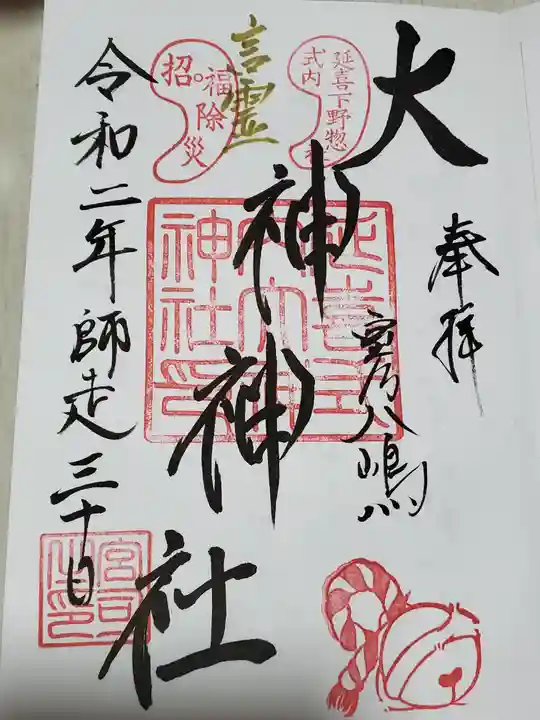 奉拝
室乃八嶋
大神神社
延喜下野惣社
式内
言霊
招福除災
延喜式
内大神
神社印
令和二年師走三十日
宮司
之印